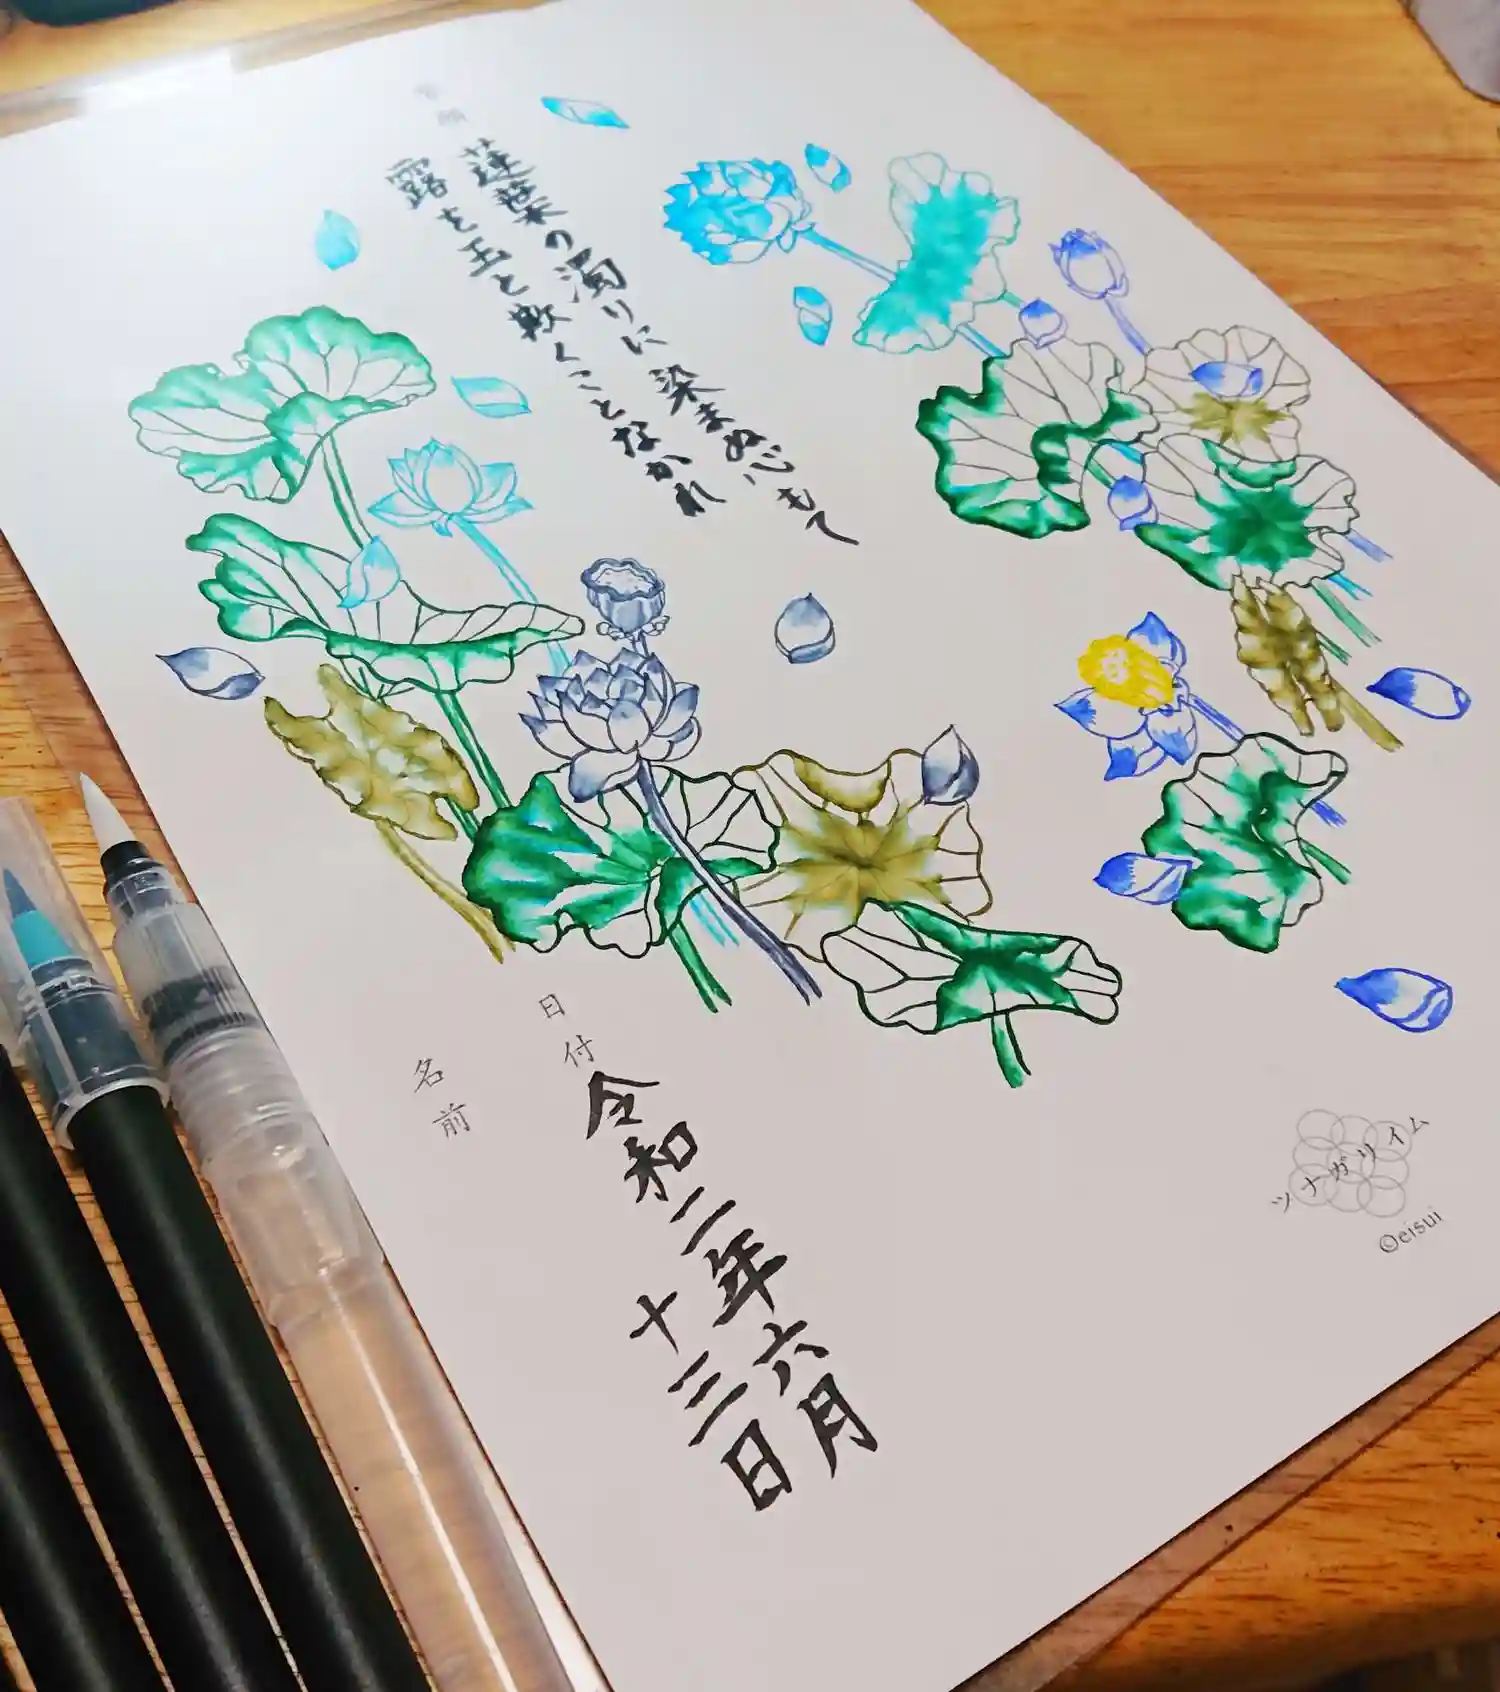 蓮葉の濁りに染まぬ心もて
露を玉と欺くことなかれ
日付
令和二年六月
十三日
名前
ツナガリイム
©eisui